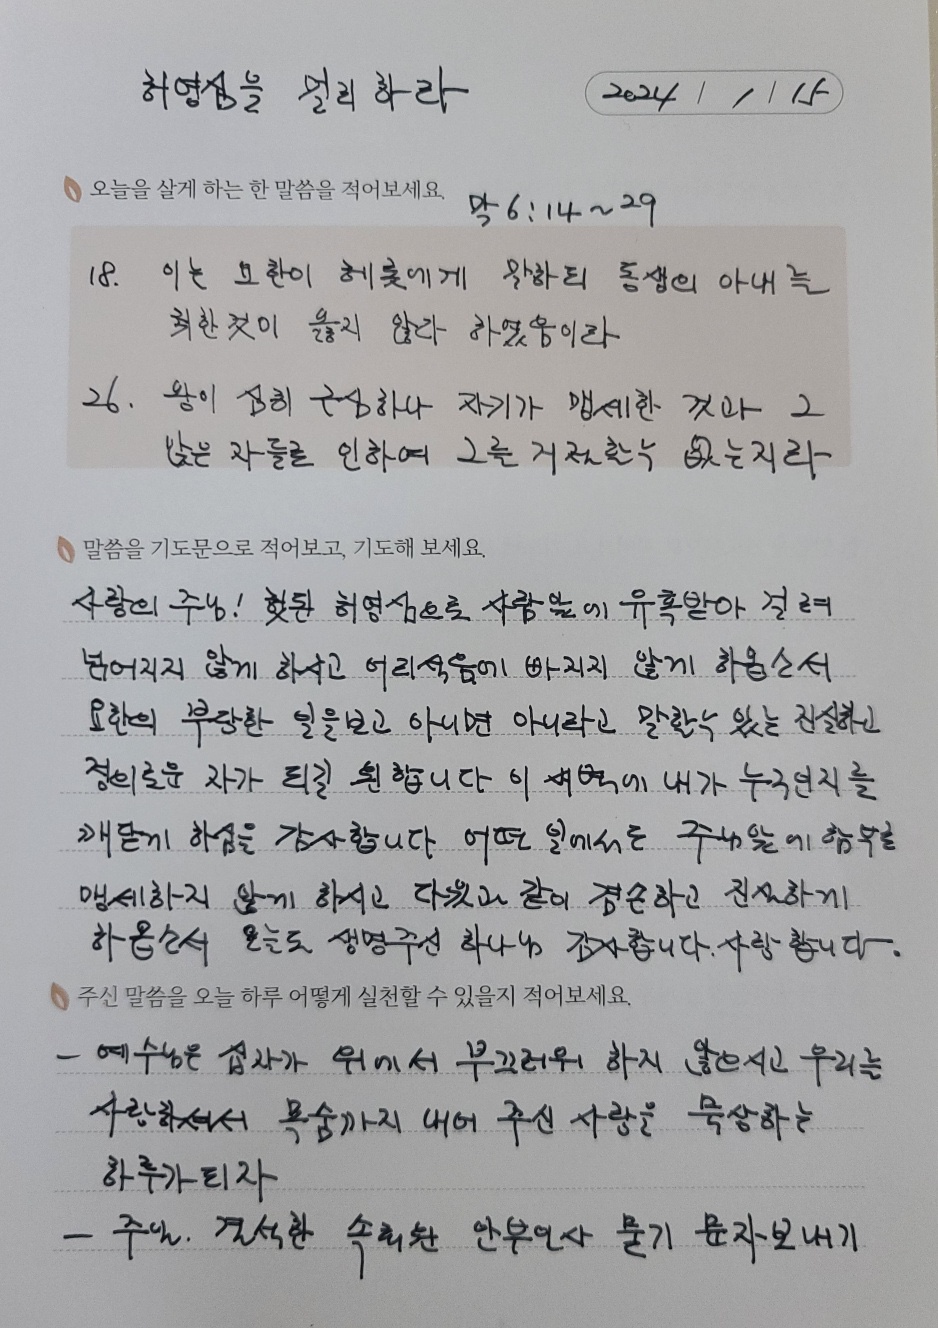 허영심을 멀리하라
2024 / 1 / 15
오늘을 살게 하는 한 말씀을 적어보세요.
막 6:14~29
18. 이는 요한이 헤롯에게 말하되 동생의 아내를
취한것이 옳지 않다 하였음이라
26. 왕이 심히 근심하나 자기가 맹세한 것과 그
앉은 자들로 인하여 그를 거절할수 없는지라
말씀을 기도문으로 적어보고, 기도해 보세요.
사랑의 주님! 헛된 허영심으로 사람앞에 유혹받아 걸려
넘어지지 않게 하시고 어리석음에 빠지지 않게 하옵소서
요한의 부당한 일을보고 아니면 아니라고 말할수 있는 진실하고
정의로운 자가 되길 원합니다 이 새벽에 내가 누구인지를
깨닫게 하심을 감사합니다 어떤 일에서든 주님앞에 함부로
맹세하지 않게 하시고 다윗과 같이 겸손하고 진실하게
하옵소서 오늘도 생명주신 하나님 감사합니다. 사랑합니다.
주신 말씀을 오늘 하루 어떻게 실천할 수 있을지 적어보세요.
- 예수님은 십자가 위에서 부끄러워 하지 않으시고 우리를
사랑하셔서 목숨까지 내어 주신 사랑을 묵상하는
하루가 되자
- 주일. 결석한 속회원 안부인사 묻기 문자보내기